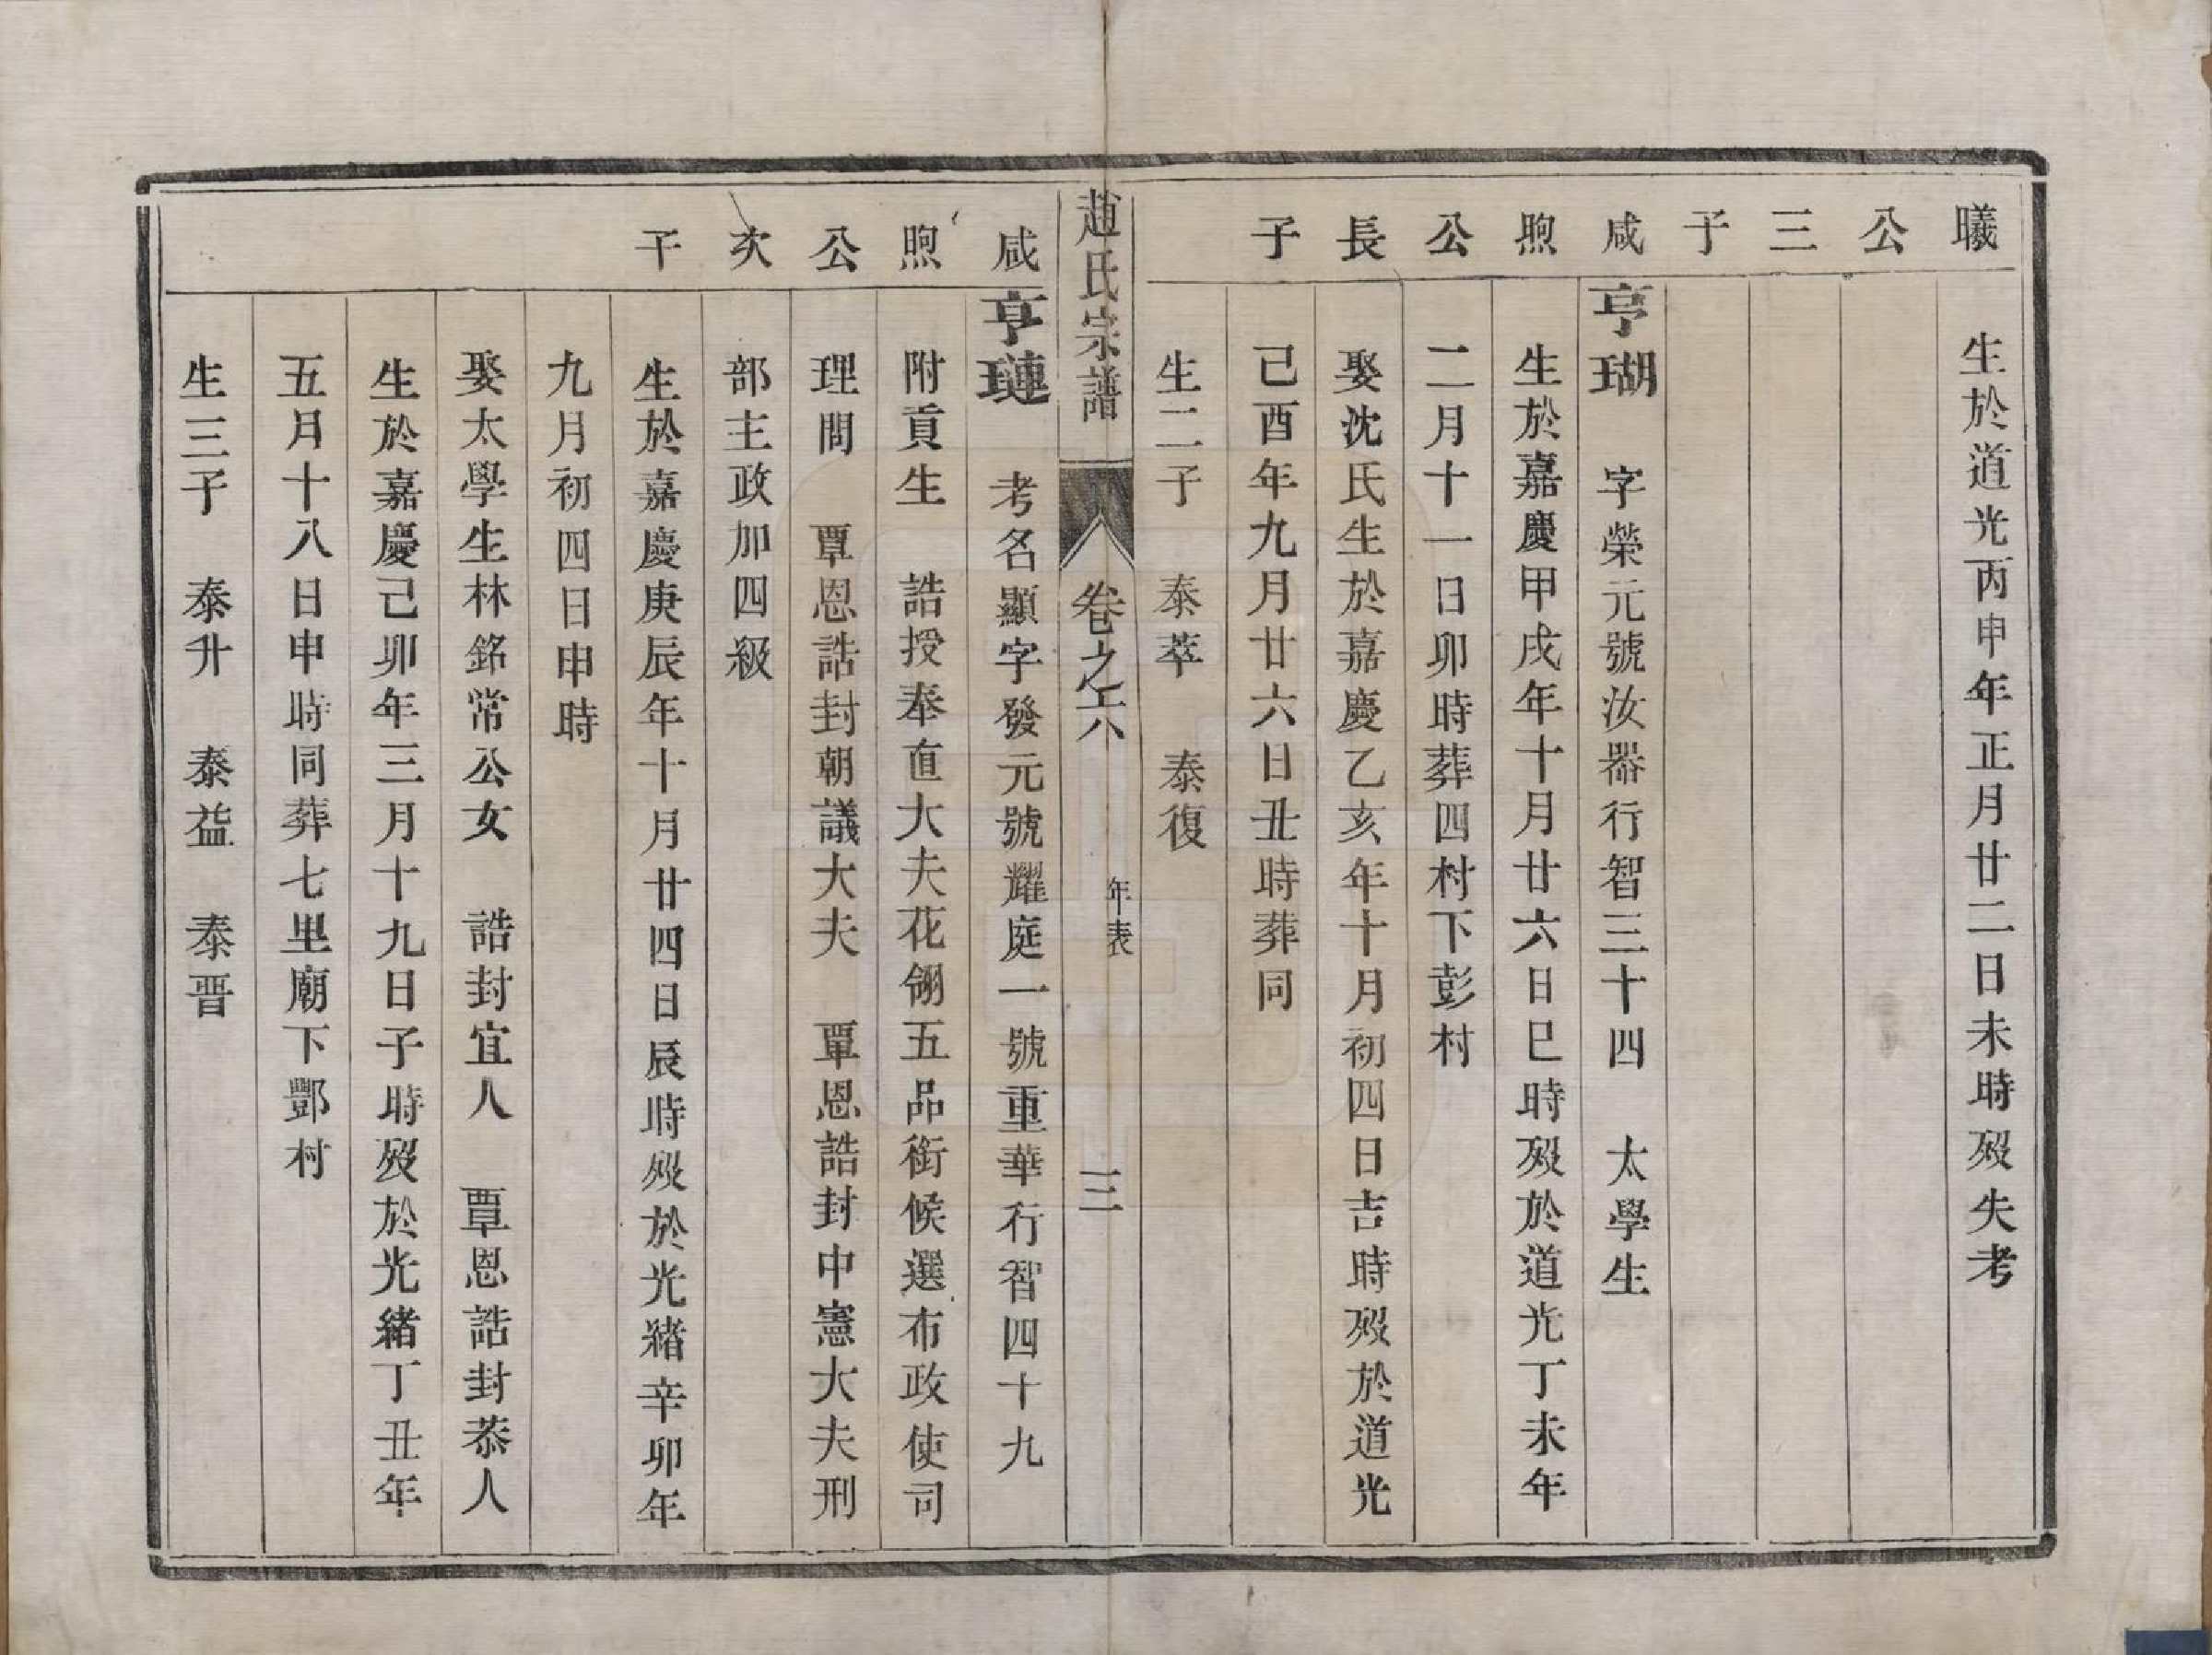 曦公三子
生於道光丙申年正月廿二日未時歿失考
咸煦公長子
亨瑚　字榮元號汝器行智三十四　太學生
生於嘉慶甲戌年十月廿六日巳時歿於道光丁未年
二月十一日卯時葬四村下彭村
娶沈氏生於嘉慶乙亥年十月初四日吉時歿於道光
己酉年九月廿六日丑時葬同
生二子　泰萃　泰復
趙氏宗譜　卷之六　年表　三
咸煦公次子
亨璉　考名顯字發元號耀庭一號重華行智四十九
附貢生　誥授奉直大夫花翎五品銜候選布政使司
理問　覃恩誥封朝議大夫　覃恩誥封中憲大夫刑
部主政加四級
生於嘉慶庚辰年十月廿四日辰時歿於光緒辛卯年
九月初四日申時
娶太學生林銘常公女　誥封宜人　覃恩誥封恭人
生於嘉慶己卯年三月十九日子時歿於光緒丁丑年
五月十八日申時同葬七里廟下酆村
生三子　泰升　泰益　泰晋